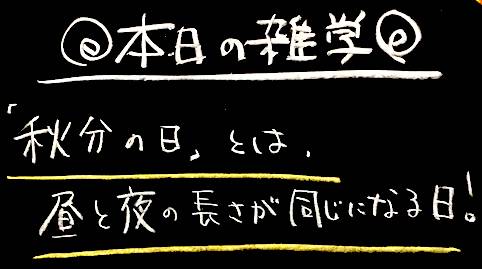 @本日の雑学@
「秋分の日」とは、
昼と夜の長さが同じになる日!